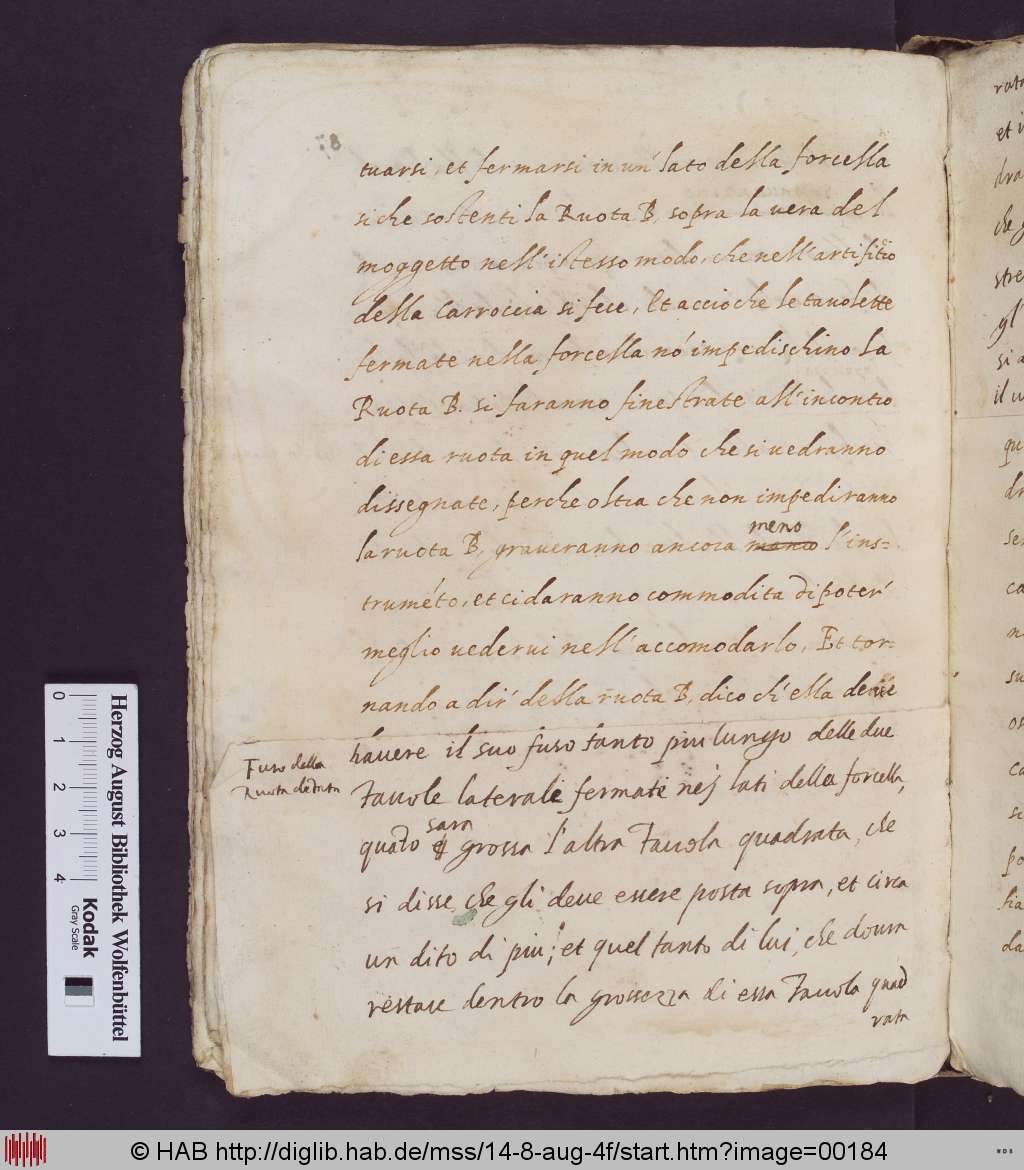 78
tuarsi, et fermarsi in un' lato della forcella
si che sostenti la Ruota B, sopra la vera del
moggetto nell'istesso modo, che nell'artifitio
della Carroccia si fece, Et accioche le tavolette
fermate nella forcella nó impedischino la
Ruota B. si faranno finestrate all'incontro
di essa ruota in quel modo che si vedranno
dissegnate, perche oltra che non impediranno
meno
la ruota B, graveranno ancora manco l'ins=
truméto, et ci daranno commodita di poter'
meglio vedervi nell'accomodarlo, Et tor-
nando a dir' della ruota B, dico ch'ella deve
havere il suo fuso tanto piu lungo delle due
Fuso della
Ruota dētata
Tavole laterali fermate nej lati della forcella,
sara
quāto è grossa l'altra Tavola quadrata, che
si disse che gli deve essere posta sopra, et circa
un dito di piu; et quel tanto di lui, che dovra
restare dentro la grossezza di essa Tavola quad
rata
rato
et i
dra
che
stre
gl'
si a
il v
qu
dr
ser
ca
n
su
os
ca
si
po
lia
da
Herzog August Bibliothek Wolfenbüttel
Kodak
Gray Scale
0 1 2 3 4
© HAB http://diglib.hab.de/mss/14-8-aug-4f/start.htm?image=00184